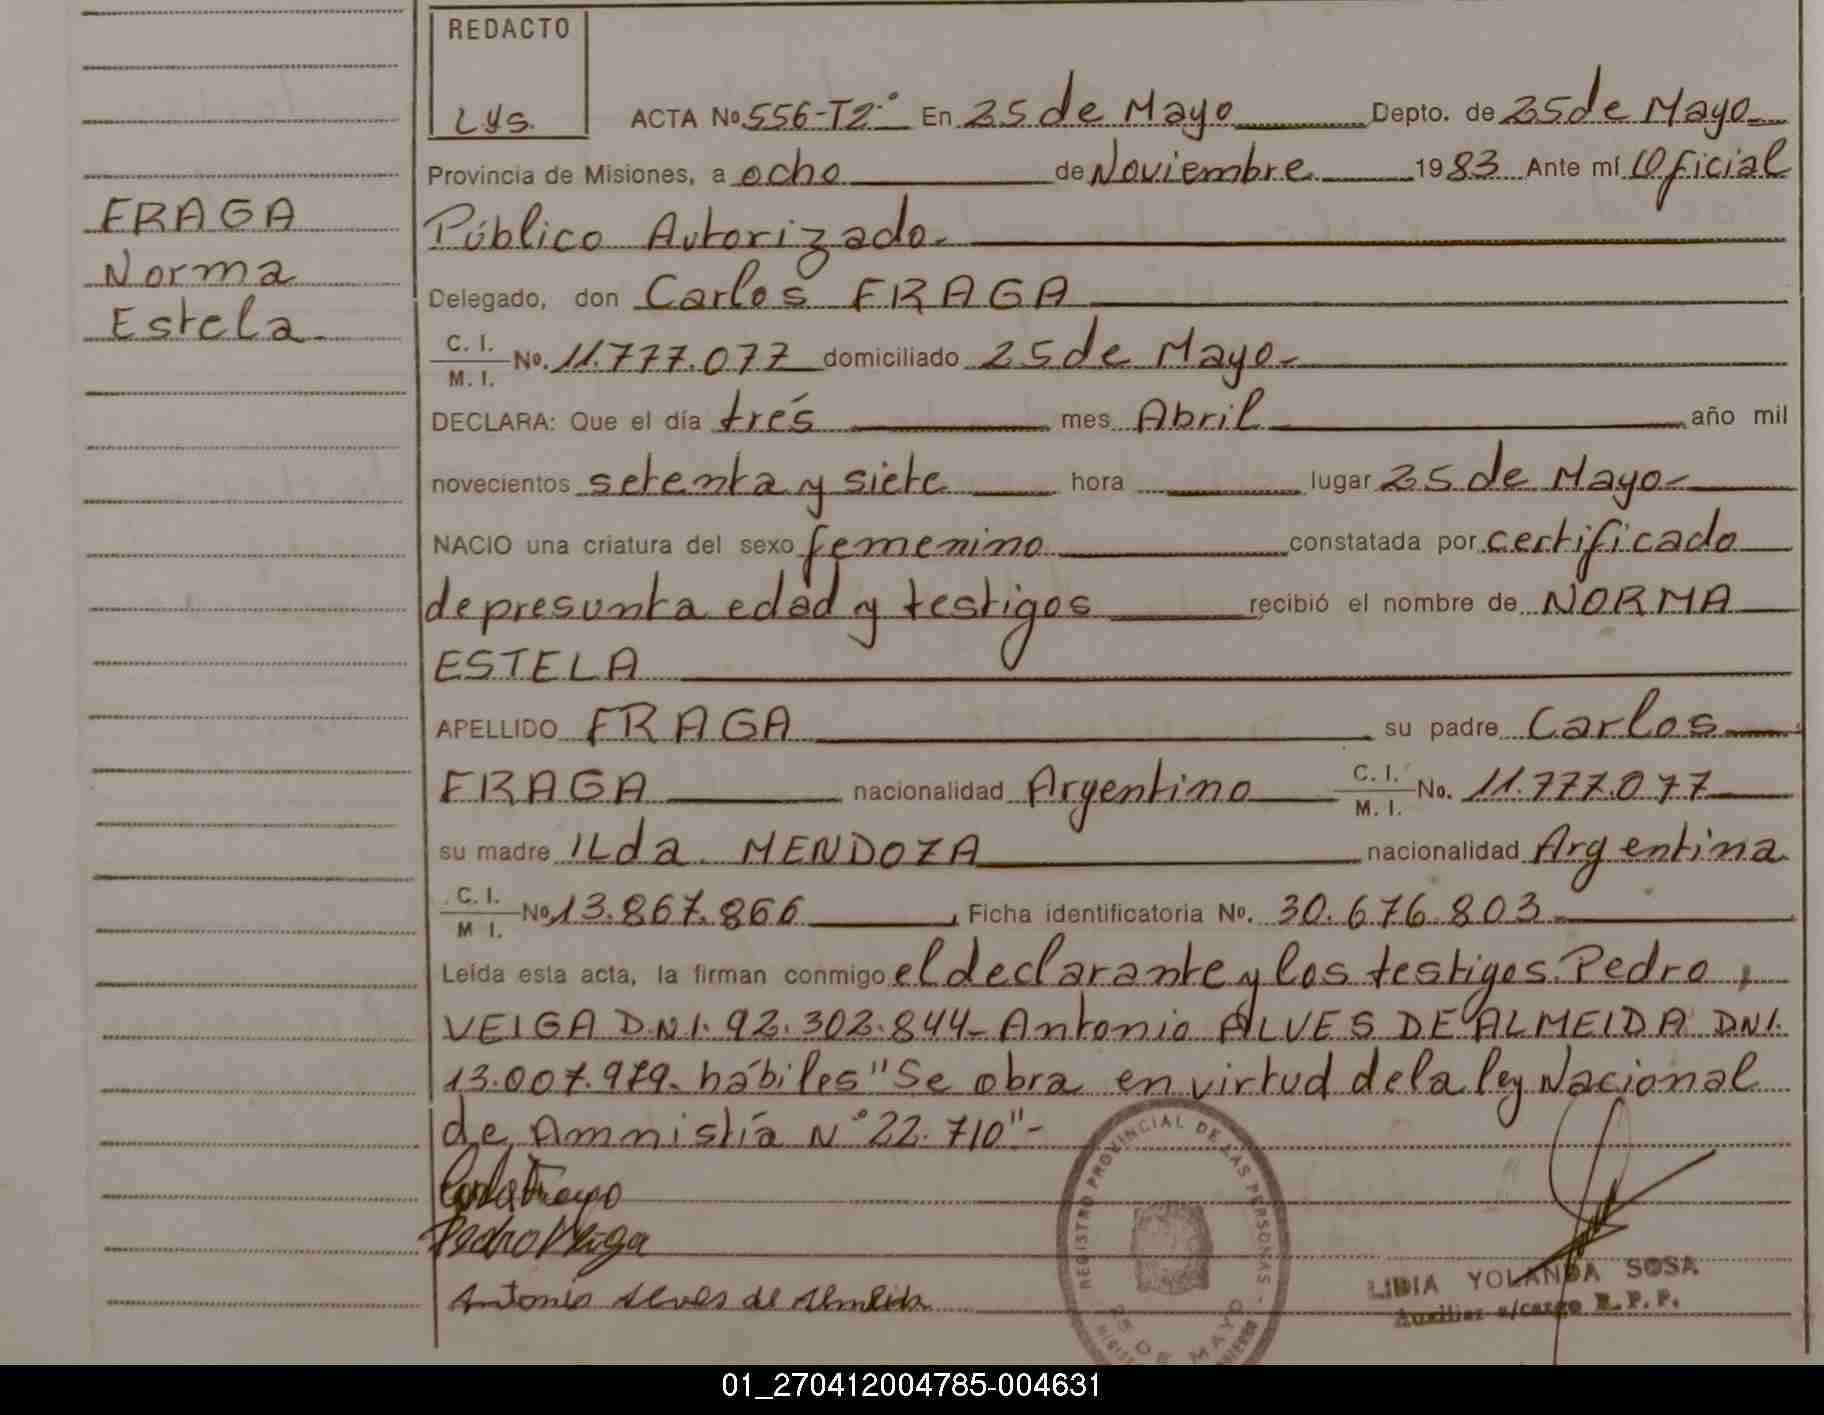 REDACTO
Lys.
ACTA No 556-T2° En 25 de Mayo Depto. de 25 de Mayo
Provincia de Misiones, a ocho de Noviembre 1983 Ante mí Oficial
FRAGA
Norma
Estela
Público Autorizado.
Delegado, don Carlos FRAGA
C. I.
M. I. No. 11.777.077 domiciliado 25 de Mayo-
DECLARA: Que el día trés mes Abril año mil
novecientos setenta y siete hora lugar 25 de Mayo-
NACIO una criatura del sexo femenino constatada por certificado
de presunta edad y testigos recibió el nombre de NORMA
ESTELA
APELLIDO FRAGA su padre Carlos
FRAGA nacionalidad Argentino C. I. M. I. No. 11.777.077
su madre ILda MENDOZA nacionalidad Argentina
C. I. M I. No 13.867.866, Ficha identificatoria No. 30.676.803
Leída esta acta, la firman conmigo el declarante y los testigos. Pedro
VEIGA D.N.I. 92.302.844- Antonio ALVES DE ALMEIDA DNI.
13.007.979- hábiles "Se obra en virtud de la ley Nacional
de Amnistía N° 22.710"-
Pedro Veiga
Antonio Alves de Almeida
REGISTRO PROVINCIAL DE LAS PERSONAS -
25 DE MAYO
LIDIA YOLANDA SOSA
Auxiliar a/cargo R. P. P.
01_270412004785-004631